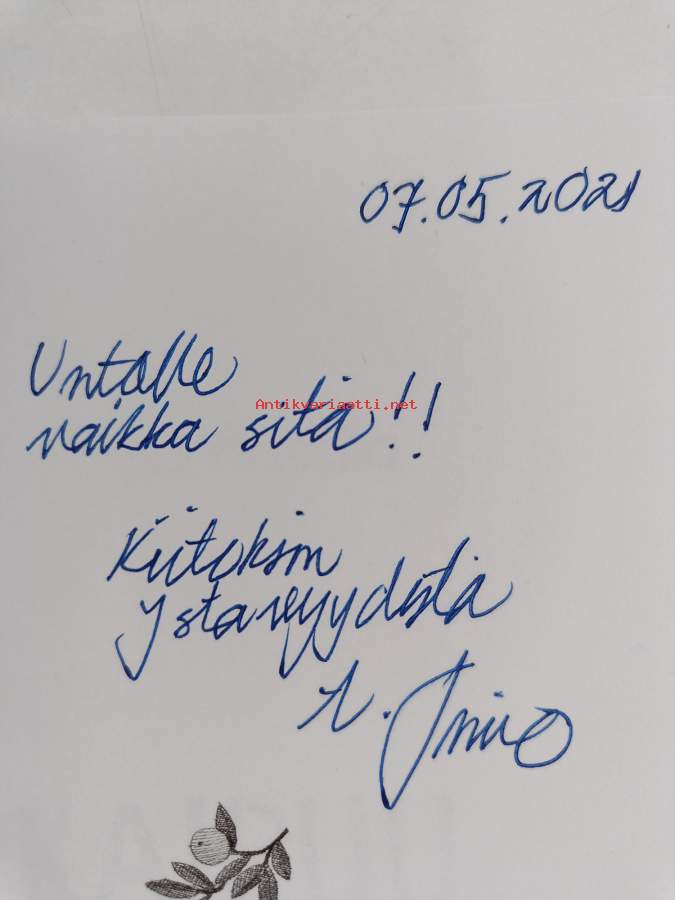 07.05.2021
Untolle
Antikvariaatti.net
vaikka sitä!!
Kiitoksin
ystävyydestä
t.